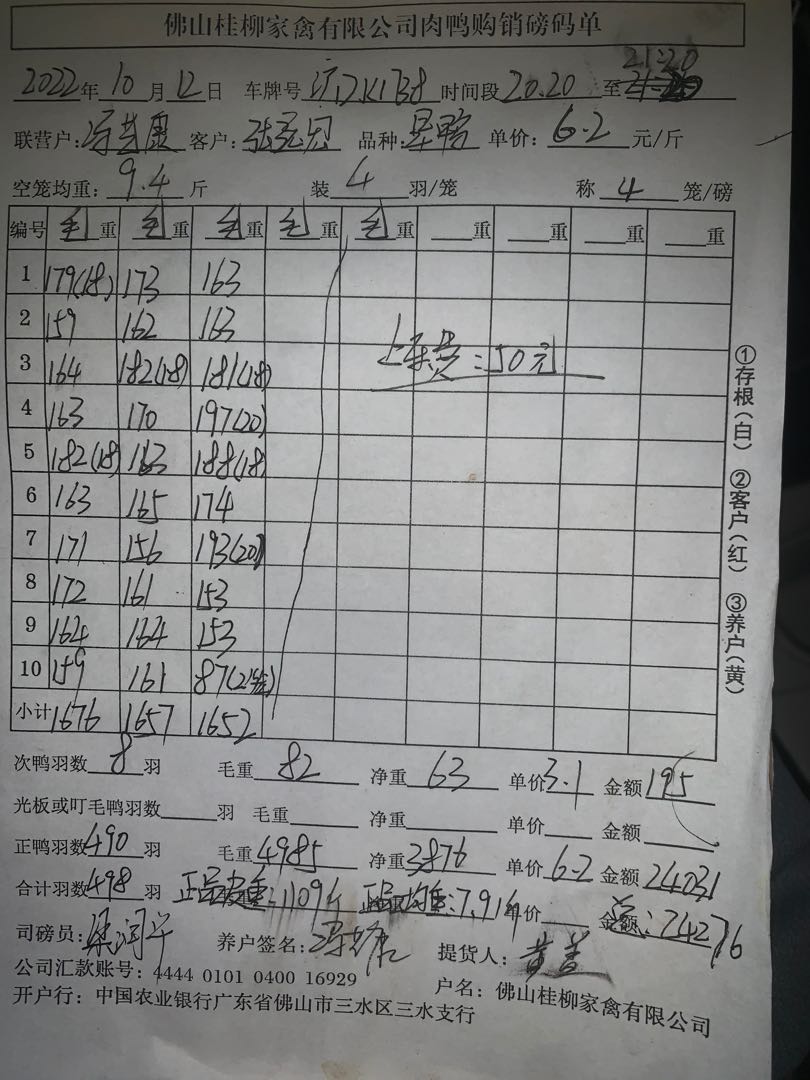 佛山桂柳家禽有限公司肉鸭购销磅码单
2022年10月12日 车牌号 时间段20.20至21:20
联营户: 客户: 品种: 单价:6.2元/斤
空笼均重:9.4斤 装4羽/笼 称4笼/磅
编号 毛重 毛重 毛重 毛重 毛重 重 重 重 重
1 179(18) 173 163
2 159 162 163
3 164 182(18) 181(18)
4 163 170 197(20)
5 182(18) 163 188(18)
6 163 165 174
7 171 156 193(20)
8 172 161 153
9 164 164 153
10 159 161 87(2笼)
小计 1676 1657 1652
:50元
①存根(白) ②客户(红) ③养户(黄)
次鸭羽数8羽 毛重82 净重63 单价3.1 金额195
光板或叮毛鸭羽数 羽 毛重 净重 单价 金额
正鸭羽数490羽 毛重4985 净重3876 单价6.2 金额24031
合计羽数498羽 正品皮重:1109斤 正品均重:7.91斤 单价 金额 总:24276
司磅员: 养户签名: 提货人:
公司汇款账号: 4444 0101 0400 16929 户名: 佛山桂柳家禽有限公司
开户行: 中国农业银行广东省佛山市三水区三水支行